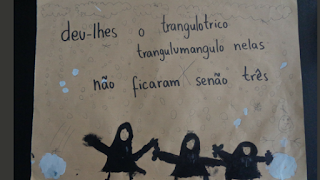 deu-lhes o trangulotrico
trangulumangulo nelas
não ficaram senão três